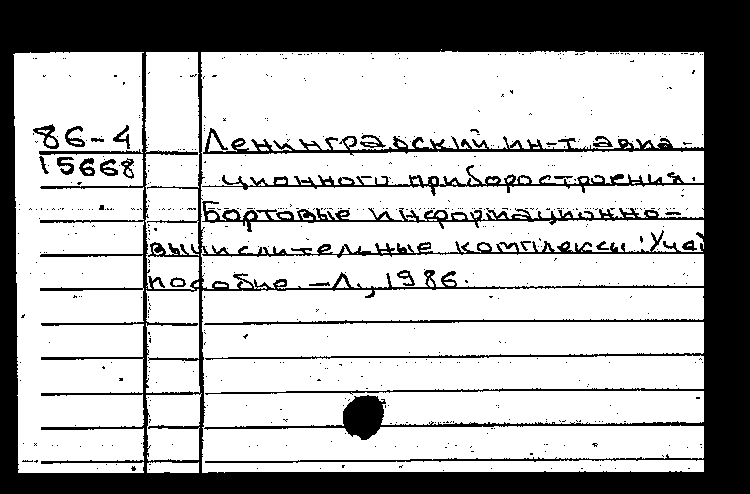 86-4
15668
Ленинградский ин-т авиа-
ционного приборостроения.
Бортовые информационно-
вычислительные комплексы: Учеб
пособие. - Л., 1986.